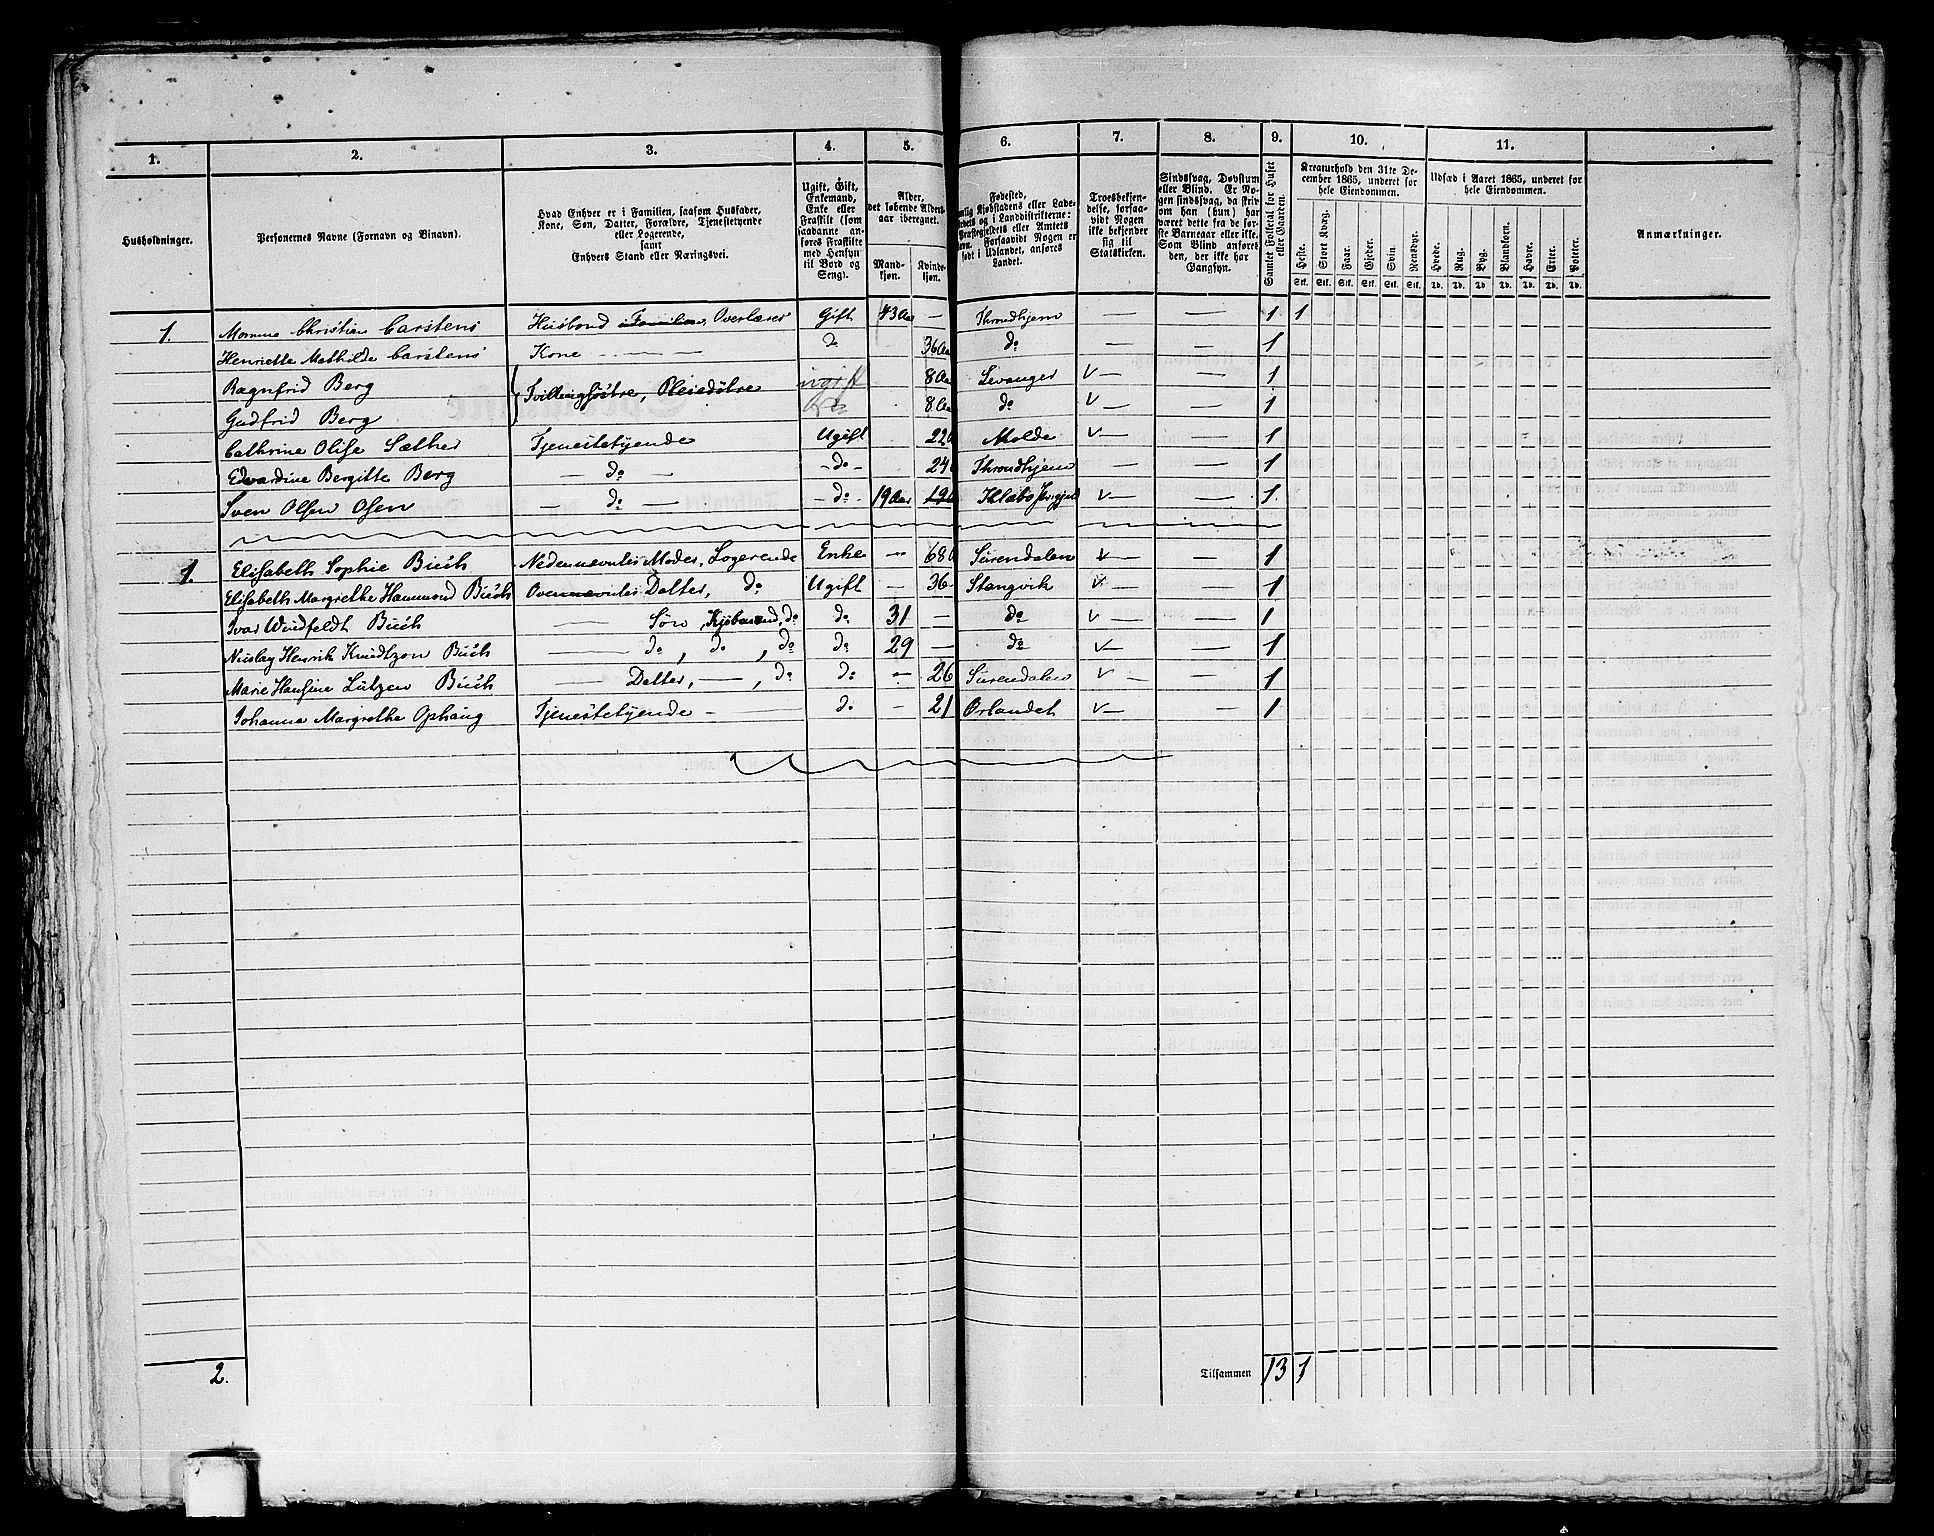 1. 2. 3. 4. 5. 6. 7. 8. 9. 10. 11.
Husholdninger.
Personernes Navne (Fornavn og Binavn).
Hvad Enhver er i Familien, saasom Husfader,
Kone, Søn, Datter, Forældre, Tjenestetyende
eller Logerende,
samt
Enhvers Stand eller Næringsvei.
Ugift, Gift,
Enkemand,
Enke eller
Fraskilt (som
saadanne an-
føres Fraskilte
med Hensyn
til Bord og
Seng).
Alder,
det løbende Alders-
aar iberegnet.
Mand-
kjøn.
Kvinde-
kjøn.
Fødested,
nemlig Kjøbstadens eller Lade-
stedets og i Landdistrikterne:
Præstegjeldets eller Amtets
Navn. Forsaavidt Nogen er
født i Udlandet, anføres
Landet.
Troesbekjen-
delse, forsaa-
vidt Nogen
ikke bekjender
sig til
Statskirken.
Sindssvag, Døvstum
eller Blind. Er No-
gen sindssvag, da skriv
om han (hun) har
været dette fra de før-
ste Barneaar eller ikke.
Som Blind anføres
den, der ikke har
Gangsyn.
Samlet Folketal for Huset
eller Gaarden.
Kreaturhold den 31te De-
cember 1865, underet for
hele Eiendommen.
Heste. Stort Kvæg. Faar. Gjeder. Svin. Rensdyr.
Stk. Stk. Stk. Stk. Stk. Stk.
Udsæd i Aaret 1865, underet for
hele Eiendommen.
Hvede. Rug. Byg. Blandkorn. Havre. Erter. Poteter.
Td. Td. Td. Td. Td. Td. Td.
Anmærkninger.
1. Momme Christian Carstens Husbond i Familien, Overlærer Gift 43 Aar — Throndhjem — — 1 1
Henriette Mathilde Carstens Kone — — — do 36 Aa do — — 1
Ragnfrid Berg Tvillingsøstre, Pleiedøtre ugift 8 Aa Levanger V — — 1
Gudfrid Berg do 8 Aa do V — — 1
Cathrine Olise Sæther Tjenestetyende Ugift 22 a Molde V — — 1
Edvardine Bergitte Berg — do — — do — 24 Throndhjem — — 1
Sven Olsen Osen — do — — do 19 Aar 19 a Klæbo V — — 1.
1. Elisabeth Sophie Busch Moder, Logerende Enke — 68 a Surendalen V — — 1
Elisabeth Margrethe Hammond Busch Datter, do Ugift — 36 - Stangvik V — — 1
Ivar Windfeldt Busch — Søn, do do 31 — do V — — 1
Henrik Knudtzon Busch — do, do, do do 29 — do V — — 1
Marie Hansine Lützen Busch — Datter, —, do do — 26 Surendalen V — — 1
Johanna Margrethe Ophaug Tjenestetyende - — do - 21 Ørlandet V — — 1
2. Tilsammen 13 1